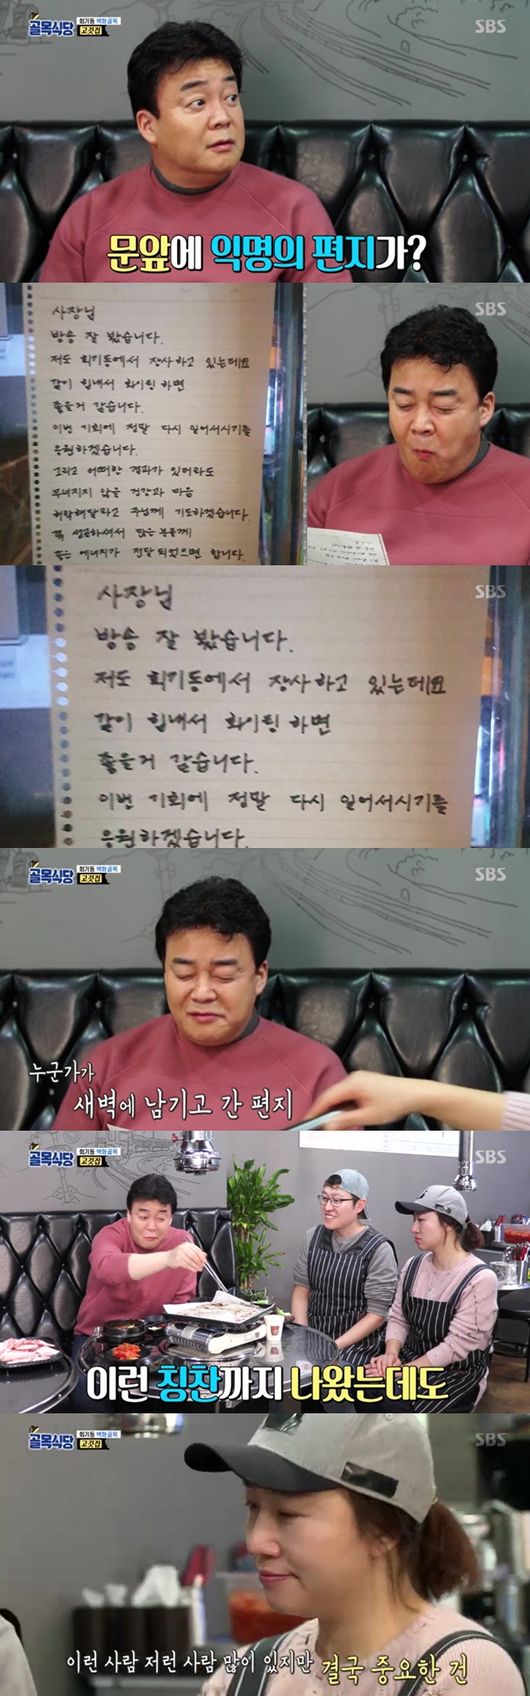 골목식당
회기동 벽화골목
고깃집
SBS
문앞에 익명의 편지가?
SBS
사장님
방송 잘 봤습니다.
저도 회기동에서 장사하고 있는데요
같이 힘내서 화이팅 하면
좋을거 같습니다.
이번 기회에 정말 다시 일어서시기를
응원하겠습니다.
그리고 어떠한 결과가 있더라도
무너지지 않을 건강과 마음
허락해달라고 주님께 기도하겠습니다.
꼭 성공하셔서 많은 분들께
좋은 에너지가 전달되었으면 합니다.
SBS
사장님
방송 잘 봤습니다.
저도 회기동에서 장사하고 있는데요
같이 힘내서 화이팅 하면
좋을거 같습니다.
이번 기회에 정말 다시 일어서시기를
응원하겠습니다.
골목식당
회기동 벽화골목
고깃집
SBS
누군가가
새벽에 남기고 간 편지
골목식당
회기동 벽화골목
고깃집
SBS
이런 칭찬까지 나왔는데도
골목식당
회기동 벽화골목
고깃집
SBS
이런 사람 저런 사람 많이 있지만 결국 중요한 건